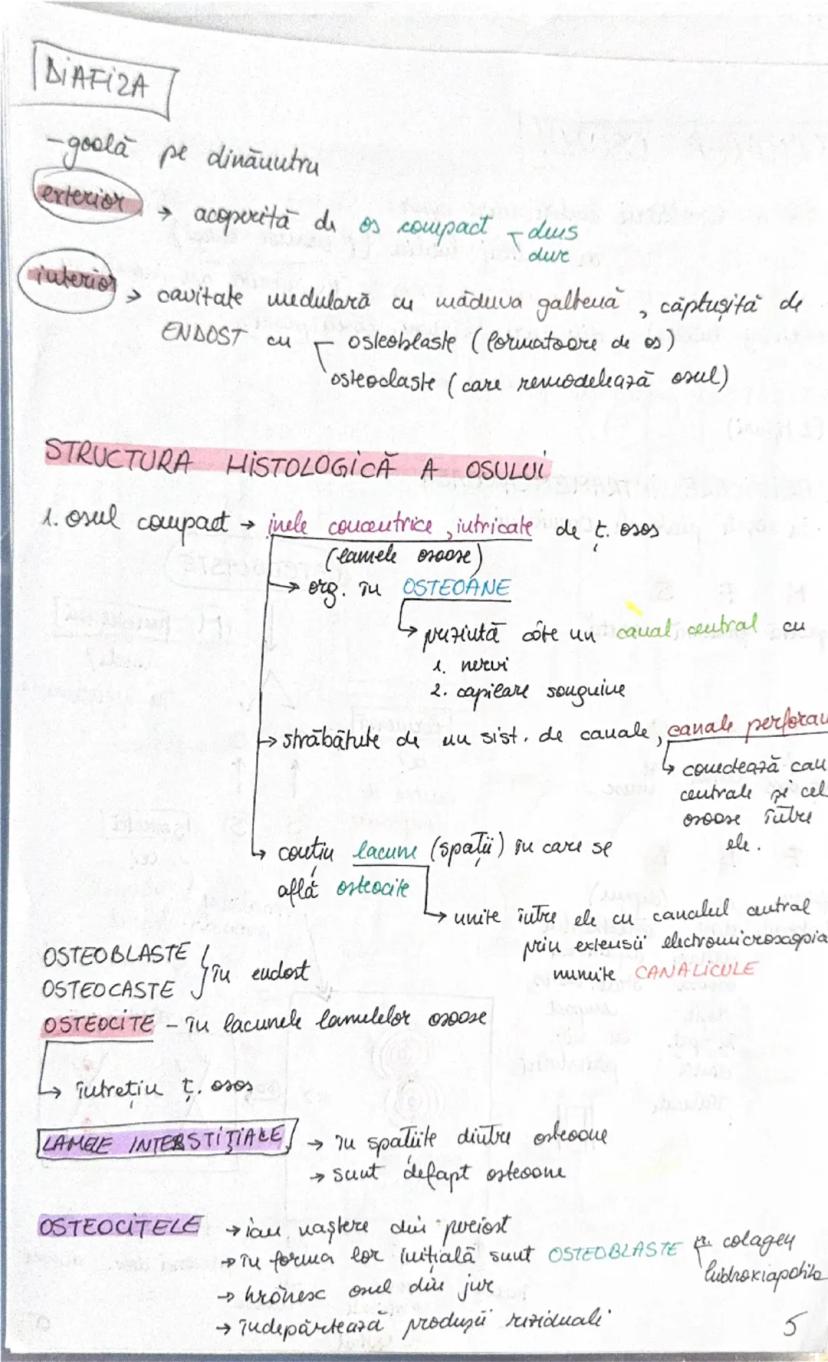 DIAFIZA
- goală pe dinăuntru
exterior → acoperită de os compact - dens
dur
interior → cavitate medulară cu măduva galbenă, căptușită de
ENDOST cu - osteoblaste (formatoare de os)
osteoclaste (care remodelează osul)
STRUCTURA HISTOLOGICĂ A OSULUI
1. osul compact → inele concentrice, intricate de ț. osos
(lamele osoase)
→ org. în OSTEOANE
↳ prezintă câte un canal central cu
1. nervi
2. capilare sanguine
→ străbătute de un sist. de canale, canale perforan
↳ conectează can
centrale și cel
osoase între
ele.
↳ conțin lacune (spații) în care se
află osteocite
→ unite între ele cu canalul central
prin extensii electromicroscopia
numite CANALICULE
OSTEOBLASTE
OSTEOCASTE } în endost
OSTEOCITE - în lacunele lamelelor osoase
↳ întrețin ț. osos
LAMELE INTERSTIȚIALE → în spațiile dintre osteoane
→ sunt defapt osteoane
OSTEOCITELE → iau naștere din periost
→ în forma lor inițială sunt OSTEOBLASTE colagen
→ hrănesc osul din jur
→ îndepărtează produșii reziduali
5